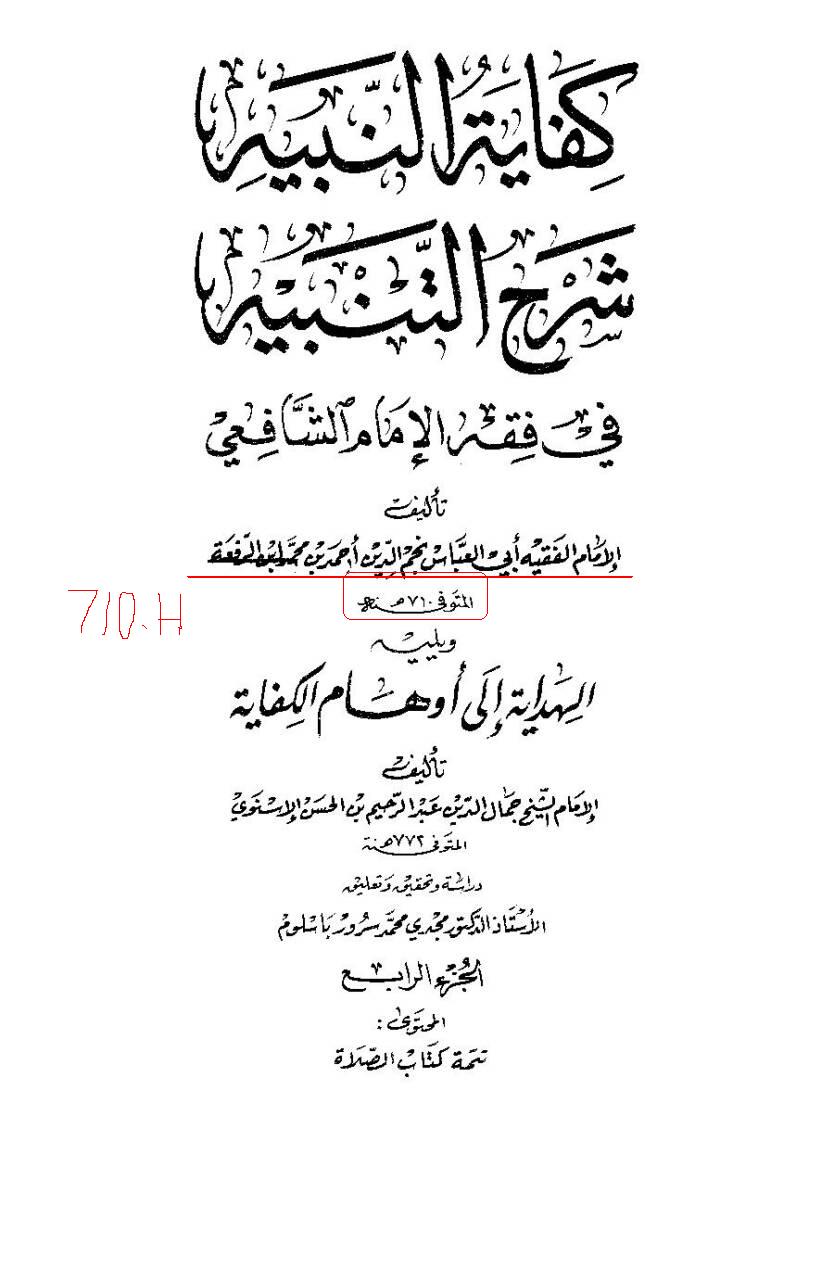 كِفَايَةُ النَّبِيهِ
شَرْحُ التَّنْبِيهِ
فِي فِقْهِ الإِمَامِ الشَّافِعِيِّ
تأليف
الإمَام الفَقيه أبي العَبَّاس نجم الدِّين أحمَد بْن محمَّد ابن الرفعَة
المتوَفى ٧١٠هـ سنة
710.H
ويليه
الهِدَاية إلَى أوهَام الكِفاية
تأليف
الإمَام الشَّيخ جمَال الدِّين عَبْد الرَّحِيم بْن الحسَن الإسْنوَي
المتوَفى ٧٧٢هـ سنة
دراسَة وتحقيق وَتعليق
الأسْتَاذ الدكتور مجْدي محمَّد سرُور بَاسْلوم
الجُزء الرابع
المحتوَى :
تتمة كتَاب الصَّلاة